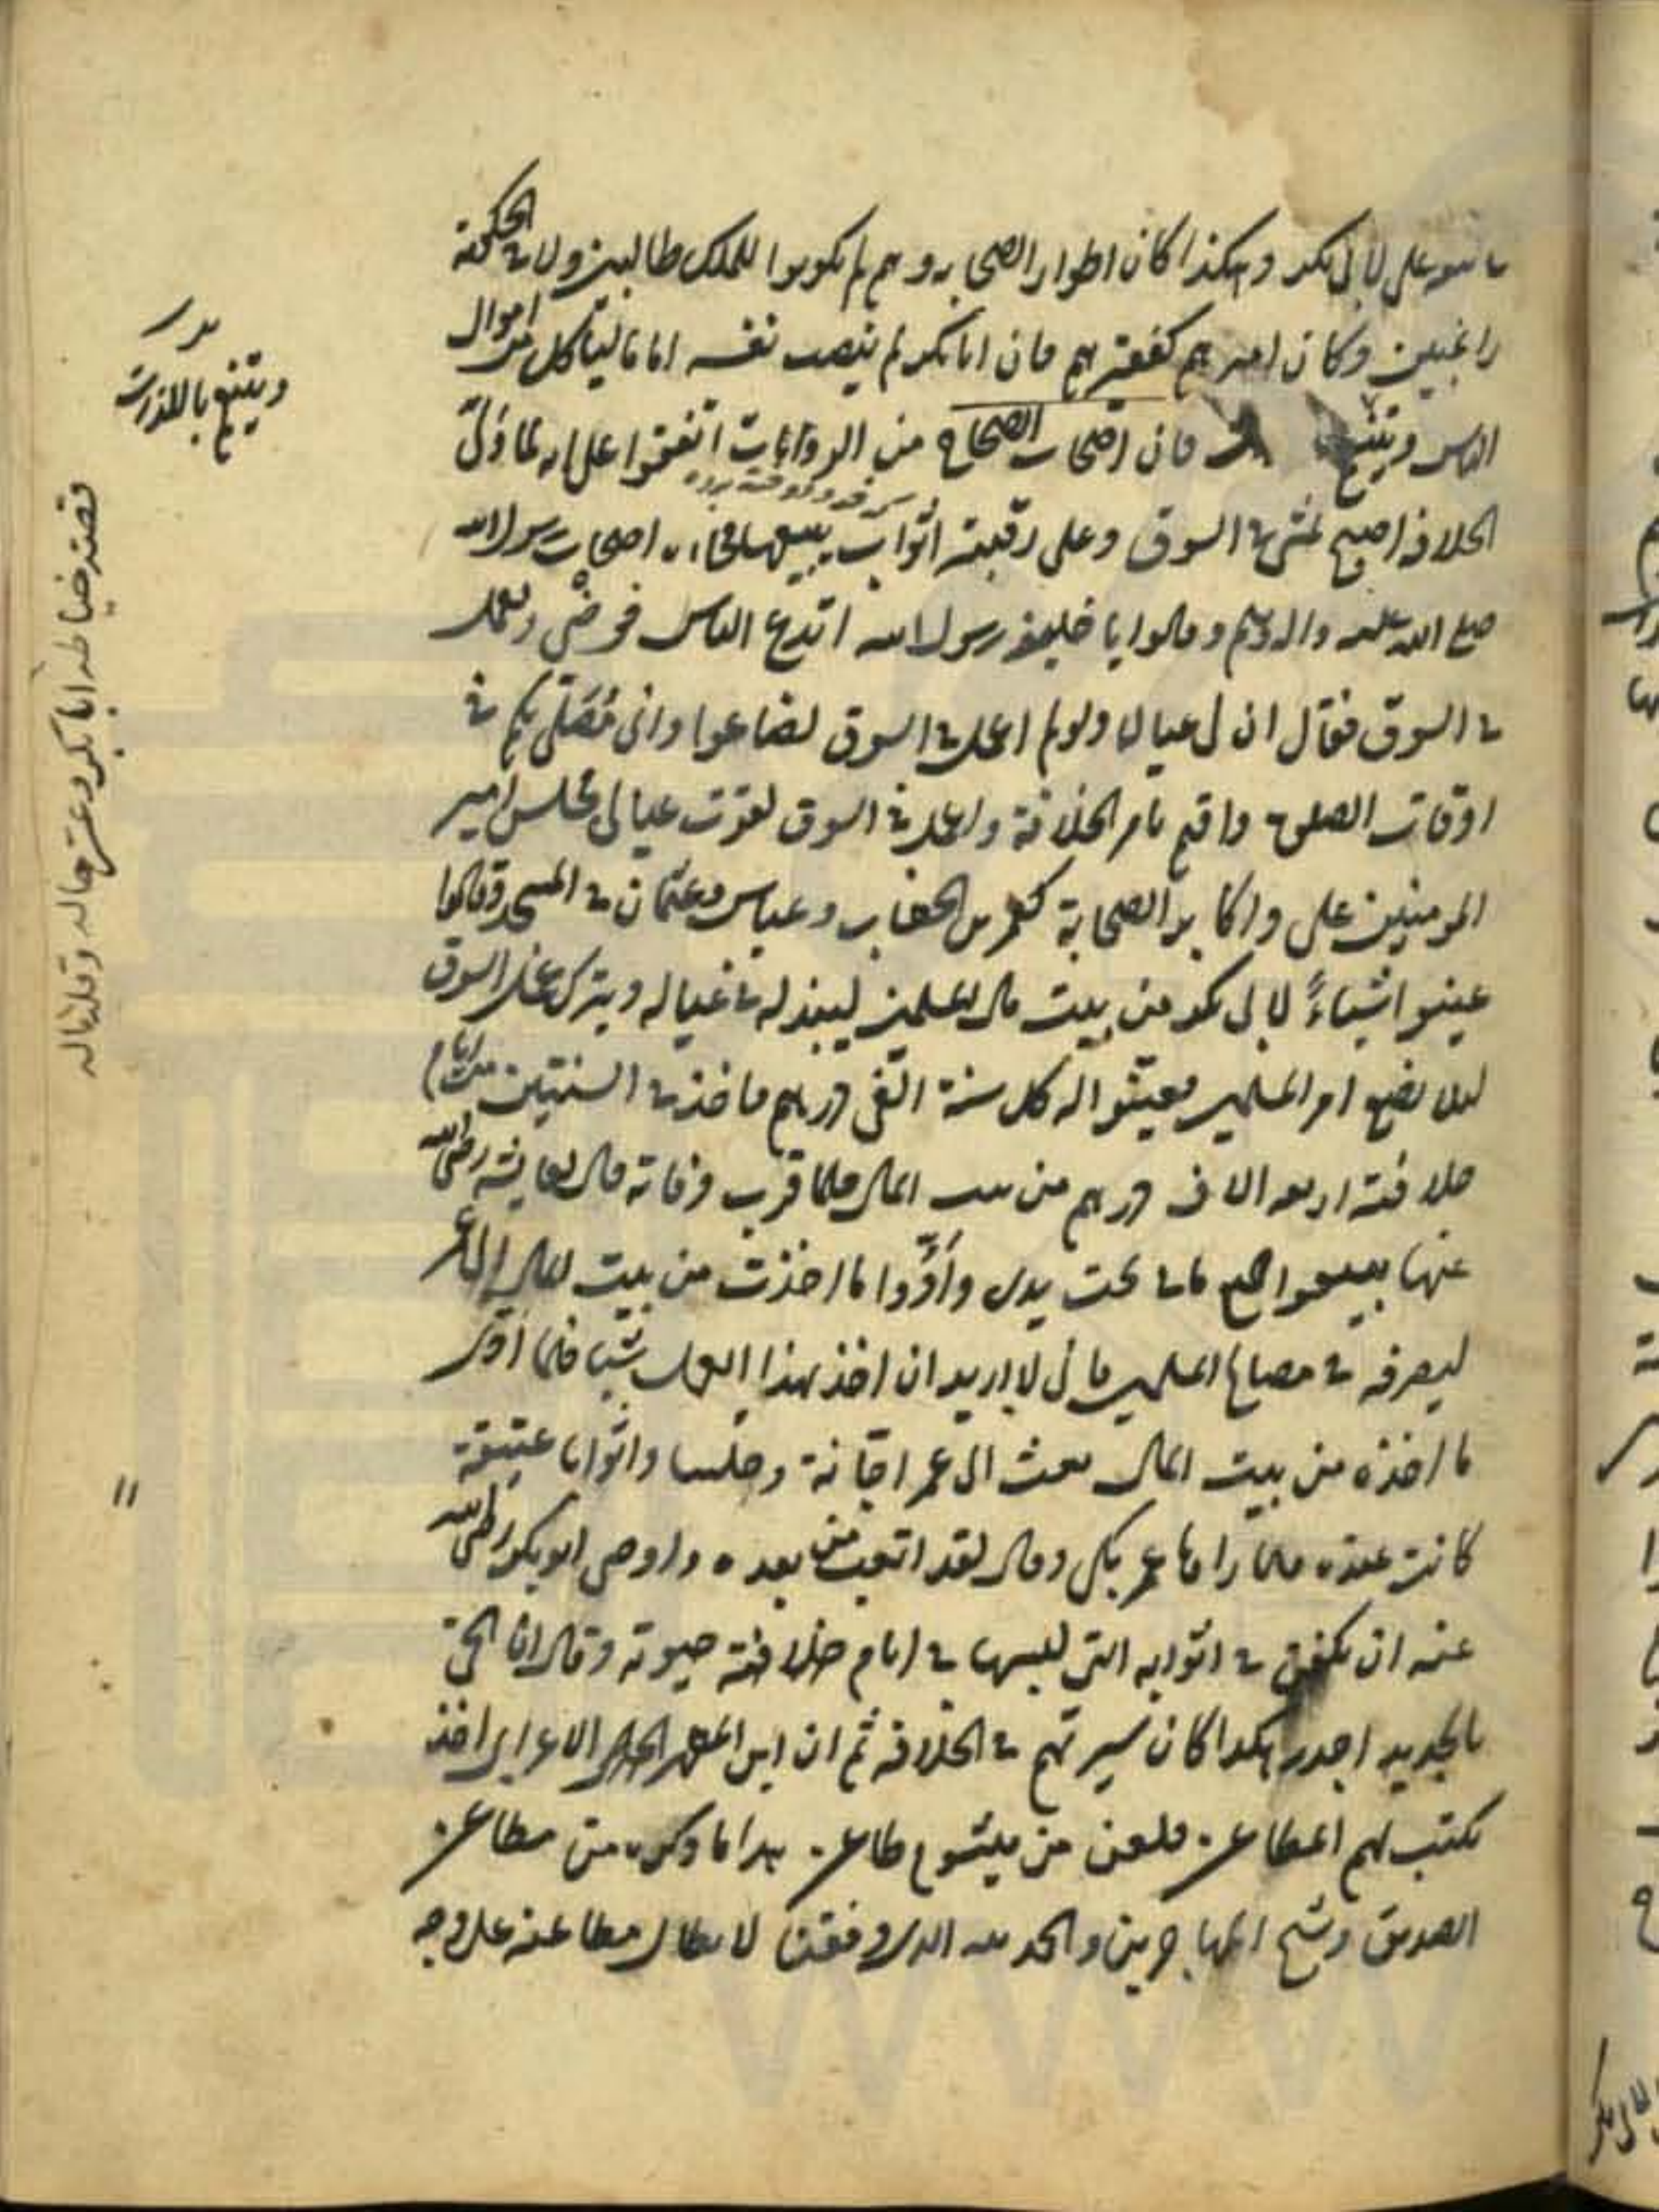 وهكذا كان اطوار الصحابه وهم لم يكونوا للملك طالبين ولا في الحكومة
راغبين وكان اميرهم كفقيرهم فان ابا بكر لم ينصب نفسه اماما لياكل من اموال
الناس ويتنعم فان اصحاب الصحاح من الروايات اتفقوا على انه لما ولى
الخلافه اصبح يمشى في السوق وعلى رقبته اثواب يبيعها فجاءه اصحاب رسول الله
صلى الله عليه واله وسلم وقالوا يا خليفه رسول الله اتدع الناس فوضى وتعمل
في السوق فقال ان لى عيالا ولو لم اعمل في السوق لضاعوا وانى مصلى بكم في
اوقات الصلوة واقيم بامر الخلافة واعمل في السوق لقوت عيالى فجلس امير
المومنين على واكابر الصحابة كعمر بن الخطاب وعباس وعثمان في المسجد وقالوا
عينوا اشياءً لابى بكر من بيت مال المسلمين لينفذ له في عياله ويترك عمل السوق
لئلا يضيع امر المسلمين فعينوا له كل سنة الفى درهم فاخذ في السنتين من ايام
خلافته اربعه الاف درهم من بيت المال فلما قرب وفاته قال لعايشه رضى الله
عنها بيعوا جميع ما في تحت يدى وأدّوا ما اخذت من بيت المال الى عمر
ليصرفه في مصالح المسلمين فانى لا اريد ان اخذ بهذا العمل شيئا فلما ادوا
ما اخذه من بيت المال بعث الى عمر اجانة وحلسا واثوابا عتيقة
كانت عنده فلما راها عمر بكى وقال لقد اتعبت من بعده واوصى ابو بكر رضى الله
عنه ان يكفن في اثوابه التى لبسها في ايام خلافته حيوته وقال انا الحى
بالجديد اجدر هكذا كان سيرتهم في الخلافه ثم ان ابن المطهر الحلى الاعرابى اخذ
يكتب لهم المطاعن فلعن من يتشوع طاعن هذا ما ذكره من مطاعن
الصديق وشيخ المهاجرين والحمد لله الذى وفقنا لابطال مطاعنه على وجه
ويتنعم باللذات
قصد خياطه ابا بكر وعسر حاله وقلة ماله